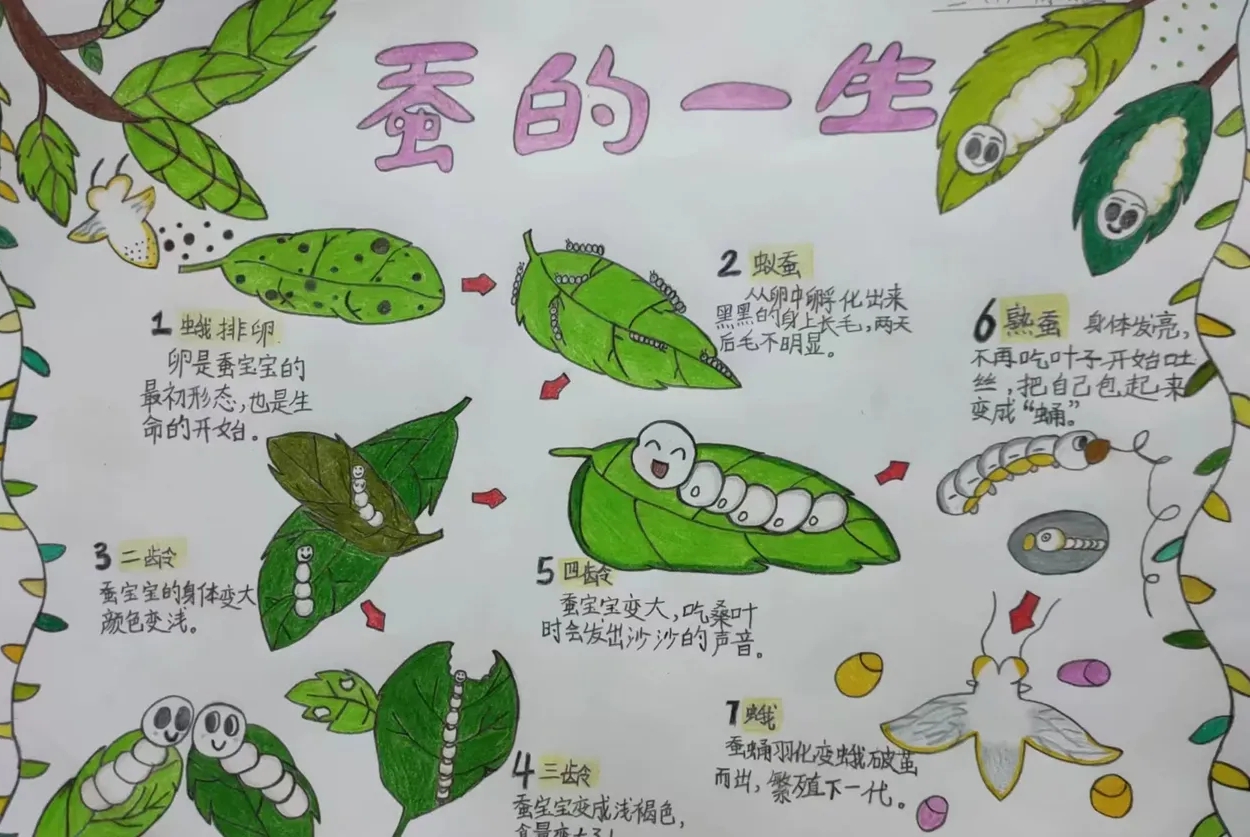 蚕的一生
1 蛾排卵
卵是蚕宝宝的
最初形态,也是生
命的开始。
2 蚁蚕
从卵中孵化出来
黑黑的身上长毛,两天
后毛不明显。
3 二龄
蚕宝宝的身体变大
颜色变浅。
4 三龄
蚕宝宝变成浅褐色,
食量变大了!
5 四龄
蚕宝宝变大,吃桑叶
时会发出沙沙的声音。
6 熟蚕 身体发亮,
不再吃叶子开始吐
丝,把自己包起来
变成“蛹”
7 蛾
蚕蛹羽化变蛾破茧
而出,繁殖下一代。